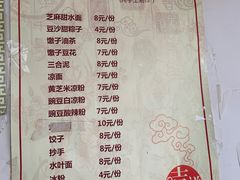 芝麻甜水面 8元/份
豆沙甜粽子 4元/份
馓子油茶 8元/份
馓子豆花 7元/份
三合泥 8元/份
凉面 7元/份
黄芝米凉粉 7元/份
豌豆白凉粉 7元/份
豌豆酸辣粉 7元/份
10元/份
饺子 8元/份
抄手 8元/份
水叶面 8元/份
冰粉 4元/份